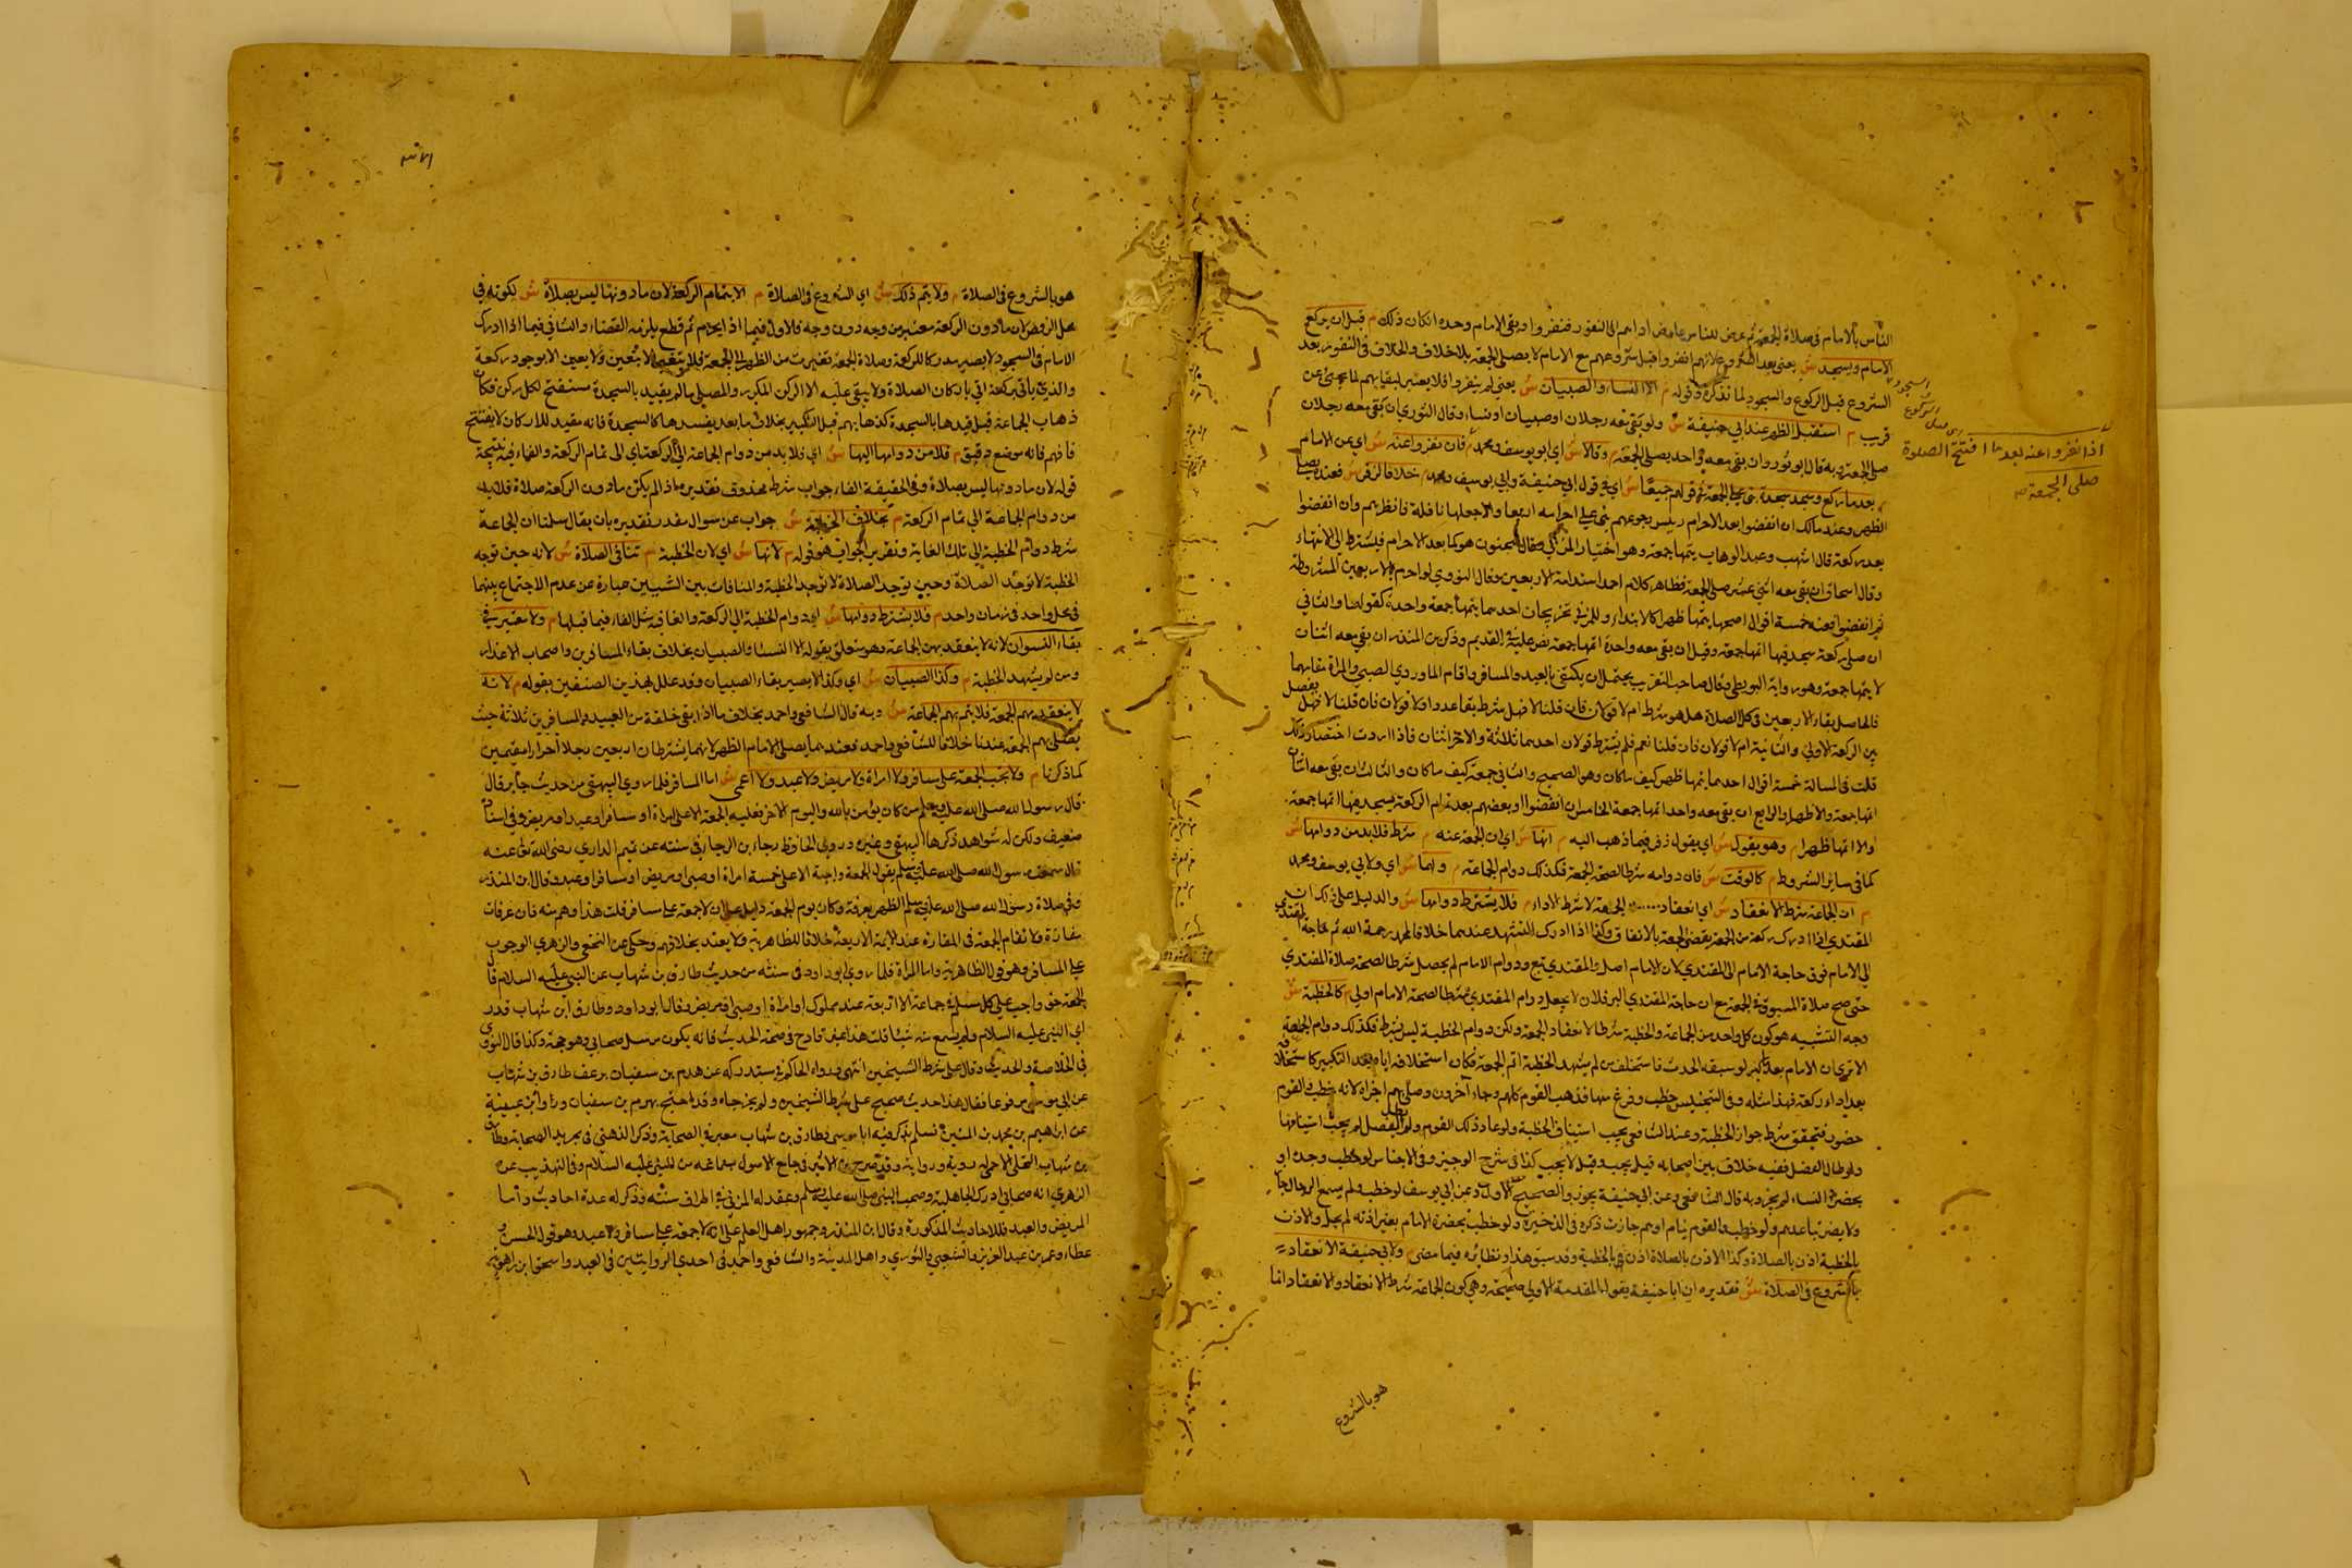 الناس بالامام في صلاة الجمعة ثم عرض للناس عارض اداهم الى النفور فنفروا وبقي الامام وحده انكان ذلك م قبل ان يركع
الامام ويسجد ش يعني بعد الشروع لانهم انفروا قبل شروعهم مع الامام لا يصلي الجمعة بلا خلاف والخلاف في النفور بعد
الشروع قبل الركوع والسجود لما نذكره وقوله م الا النساء والصبيان ش يعني لم ينفروا فلا يعتبر لبقايهم لما يجئ عن
قريب م استقبل الظهر عند ابي حنيفة ش ولو بقي معه رجلان او صبيان او نساء وقال الثوري ان بقي معه رجلان
صلى الجمعة وبه قال ابو ثور وان بقي معه واحد يصلي الجمعة م وقالا ش اي ابو يوسف ومحمد م فان نفروا عنه ش اي عن الامام
م بعد ما ركع وسجد سجدة بنى على الجمعة في قولهم جميعا ش اي في قول ابي حنيفة وابي يوسف ومحمد م خلافا لزفر ش فعنده يصلي
الظهر وعند مالك ان انفضوا بعد الاحرام ويئس رجوعهم بنى على احرامه اربعا والا جعلها نافلة فانتظرهم وان انفضوا
بعد ركعة قال اشهب وعبد الوهاب يتمها جمعة وهو اختيار المزني وقال سحنون هو كما بعد الاحرام فيشترط الى الانتهاء
وقال اسحاق ان بقي معه اثني عشر صلى الجمعة فظاهر كلام احمد استدامة الاربعين وقال النووي لو احرم بالاربعين المشروطة
ثم انفضوا ففيه خمسة اقوال اصحها يتمها ظهرا كالابتداء وللمزني تخريجان احدهما يتمها جمعة واحدة كقولنا والثاني
ان صلى ركعة بسجدتيها اتمها جمعة وقيل ان بقي معه واحدة اتمها جمعة نص عليه في القديم وذكر بن المنذر ان بقي معه اثنان
لا يتمها جمعة وهو رواية البويطي وقال صاحب التقريب يحتمل ان يكتفي بالعبد والمسافر واقام الماوردي الصبي والمراة مقامهما
فالحاصل بقاء الاربعين في كل الصلاة هل هو شرط ام لا قولان فان قلنا لا فهل شرط بقاء عدد ام لا قولان فان قلنا لا فهل يفصل
بين الركعة الاولى والثانية ام لا قولان فان قلنا نعم فلم يشترط قولان احدهما ثلاثة والاخر اثنان فاذا اردت اختصار ذلك
قلت في المسالة خمسة اقوال احدهما يتمها ظهر كيف ما كان وهو الصحيح والثاني جمعة كيف ما كان والثالث ان بقي معه اثنان
اتمها جمعة والا ظهرا والرابع ان بقي معه واحد اتمها جمعة الخامس ان انفضوا او بعضهم بعد تمام الركعة بسجدتيها اتمها جمعة
والا اتمها ظهرا م وهو يقول ش اي يقول زفر فيما ذهب اليه م انها ش اي ان الجمعة عنه م شرط فلا بد من دوامها ش
كما في ساير الشروط م كالوقت ش فان دوامه شرط لصحة الجمعة فكذلك دوام الجماعة م ولهما ش اي ولابي يوسف ومحمد
م ان الجماعة شرط الانعقاد ش اي انعقاد الجمعة لا شرط الاداء م فلا يشترط دوامها ش والدليل على ذلك ان
المقتدي اذا ادرك ركعة من الجمعة يقضي الجمعة بالاتفاق وكذا اذا ادرك التشهد عندهما خلافا لمحمد رحمة الله ثم حاجة المقتدي
الى الامام فوق حاجة الامام الى المقتدي لان الامام اصل والمقتدي تبع ودوام الامام لم يجعل شرطا لصحة صلاة المقتدي
حتى صح صلاة المسبوق في الجمعة مع ان حاجة المقتدي اليه فلان لا يجعل دوام المقتدي شرطا لصحة الامام اولى م كالخطبة ش
وجه التشبيه هو كون كل واحد من الجماعة والخطبة شرطا لانعقاد الجمعة ولكن دوام الخطبة ليس بشرط فكذلك دوام الجماعة
الا ترى ان الامام بعد ما كبر لو سبقه الحدث فاستخلف من لم يشهد الخطبة اتم الجمعة فكان استخلافه اياه بعد التكبير كاستخلافه
بعد اداء ركعة فهذا مثله وفي التجنيس خطب وفرغ منها فذهب القوم كلهم وجاء اخرون وصلى بهم اجزاه لانه خطب والقوم
حضور فتحقق شرط جواز الخطبة وعند الشافعي يجب استيناف الخطبة ولو عاد ذلك القوم ولم يطل الفصل لم يجب استينافها
ولو طال الفصل ففيه خلاف بين اصحابه قيل يجب وقيل لا يجب كذا في شرح الوجيز وفي الاجناس لو خطب وحده او
بحضرة النساء لم يجز وبه قال الشافعي وعن ابي حنيفة يجوز والصحيح الاول وعن ابي يوسف لو خطب ولم يسمع الرجال جاز
ولا يضر تباعدهم ولو خطب والقوم نيام او هم جازت ذكره في الذخيرة ولو خطب بحضرة الامام بغير اذنه لم يجز والاذن
بالخطبة اذن بالصلاة وكذا الاذن بالصلاة اذن في الخطبة وقد سبق هذا ونظائره فيما مضى م ولابي حنيفة الانعقاد =
بالشروع في الصلاة ش تقديره ان ابا حنيفة يقول المقدمة الاولى صحيحة وهي كون الجماعة شرط الانعقاد والانعقاد انما
اذا نفروا عنه بعد ما افتتح الصلوة
صلى الجمعة صح
هو بالشروع
هو بالشروع في الصلاة م ولا يتم ذلك ش اي الشروع في الصلاة م الا بتمام الركعة لان ما دونها ليس بصلاة ش لكونه في
محل الرفض لان ما دون الركعة معتبر من وجه دون وجه فالاول فيما اذا يحرم ثم قطع يلزمه القضاء والثاني فيما اذا ادرك
الامام في السجود لا يصير مدركا للركعة وصلاة الجمعة تغيرت من الظهر الى الجمعة فلا يتغير الا بيقين ولا يقين الا بوجود ركعة
والذي ياتي بركعة اتي باركان الصلاة ولا يبقى عليه الا الركن المكرر والمصلي ما لم يقيد بالسجدة مستفتح لكل ركن فكان
ذهاب الجماعة قبل قيدها بالسجدة كذهابهم قبل التكبير بخلاف ما بعد يفسدها كالسجدة فانه مقيد للاركان لا يفتتح
فافهم فانه موضع دقيق م فلا من دوامها اليها ش اي فلا بد من دوام الجماعة الى الركعة اي الى تمام الركعة والفاء فيه نتيجة
قوله لان ما دونها ليس بصلاة وفي الحقيقة الفاء جواب شرط محذوف تقديره اذا لم يكن ما دون الركعة صلاة فلا بد
من دوام الجماعة الى تمام الركعة م بخلاف الخطبة ش جواب عن سوال مقدر تقديره بان يقال سلمنا ان الجماعة
شرط دوام الخطبة الى تلك الغاية وتقرير الجواب هو قوله م لانها ش اي لان الخطبة م تنافي الصلاة ش لانه حين توجد
الخطبة لا توجد الصلاة وحين توجد الصلاة لا توجد الخطبة والمنافات بين الشيئين عبارة عن عدم الاجتماع بينهما
في محل واحد في زمان واحد م فلا يشترط دوامها ش اي دوام الخطبة الى الركعة والفاء فيه مثل الفاء فيما قبلها م ولا معتبر في
بقاء النسوان لانه لا ينعقد بهن الجماعة وهو متعلق بقوله الا النساء والصبيان بخلاف بقاء المسافرين واصحاب الاعذار
ومن لم يشهد الخطبة م وكذا الصبيان ش اي وكذا لا يصير بقاء الصبيان وقد علل لهذين الصنفين بقوله م لانه
لا ينعقد بهم الجمعة فلا يتم بهم الجماعة ش وبه قال الشافعي واحمد بخلاف ما اذا بقي خلفه من العبيد والمسافرين ثلاثة حيث
يصلي بهم الجمعة عندنا خلافا للشافعي واحمد فعندهما يصلي الامام الظهر لانهما يشترطان اربعين رجلا احرارا مقيمين
كما ذكرنا م ولا تجب الجمعة على مسافر ولا امراة ولا مريض ولا عبد ولا اعمى ش اما المسافر فلما روى البيهقي من حديث جابر قال
قال رسول الله صلى الله عليه وسلم من كان يؤمن بالله واليوم الاخر فعليه الجمعة الا على امراة او مسافر او عبد او مريض وفي اسناده
ضعيف ولكن له شواهد ذكرها البيهقي وغيره وروى الحافظ رجاء بن الرجاء في سننه عن تميم الداري رضي الله تعالى عنه
قال سمعت رسول الله صلى الله عليه وسلم يقول الجمعة واجبة الا على خمسة امراة او صبي او مريض او مسافر او عبد وقال ابن المنذر
وفي صلاة رسول الله صلى الله عليه وسلم الظهر بعرفة وكان يوم الجمعة دليل على ان لا جمعة على مسافر قلت هذا وهم منه فان عرفات
مفازة ولا تقام الجمعة في المفازة عند الائمة الاربعة خلافا للظاهرية ولا يعتد بخلافهم وحكي عن النخعي والزهري الوجوب
على المسافر وهو قول الظاهرية واما المراة فلما روى ابو داود في سننه من حديث طارق بن شهاب عن النبي عليه السلام قال
الجمعة حق واجب على كل مسلم في جماعة الا اربعة عند مملوك او امراة او صبي او مريض وقال ابو داود وطارق ابن شهاب قد را
اى النبي عليه السلام ولم يسمع منه شيئا قلت هذا غير قادح في صحة الحديث فانه يكون مرسل صحابي وهو حجة وكذا قال النووي
في الخلاصة والحديث وقال على شرط الشيخين انتهى ورواه الحاكم في مستدركه عن هدم بن سفيان برعف طارق بن شهاب
عن ابي موسى مرفوعا فقال هذا حديث صحيح على شرط الشيخين ولم يخرجاه وقد احتج بهرم بن سفيان ورواه ابن عيينة
عن ابراهيم بن محمد بن المنتشر فسلم يذكر فيه ابا موسى وطارق بن شهاب معدود في الصحابة وذكر الذهبي في تجريد الصحابة وطارق
بن شهاب البجلي الاحمسي له روية ورواية وقد صرح بن الاثير في جامع الاصول بسماعه من النبي عليه السلام وفي التهذيب عن
الزهري انه صحابي ادرك الجاهلية وصحب النبي صلى الله عليه وسلم وعقد له المزني في اطراف سننه وذكر له عدة احاديث واما
المريض والعبد فللاحاديث المذكورة وقال ابن المنذر وجمهور اهل العلم على انه لا جمعة على مسافر ولا عبد وهو قول الحسن و
عطاء وعمر بن عبد العزيز والشعبي والثوري واهل المدينة والشافعي واحمد في احدى الروايتين في العبد واسحق ابن راهويه